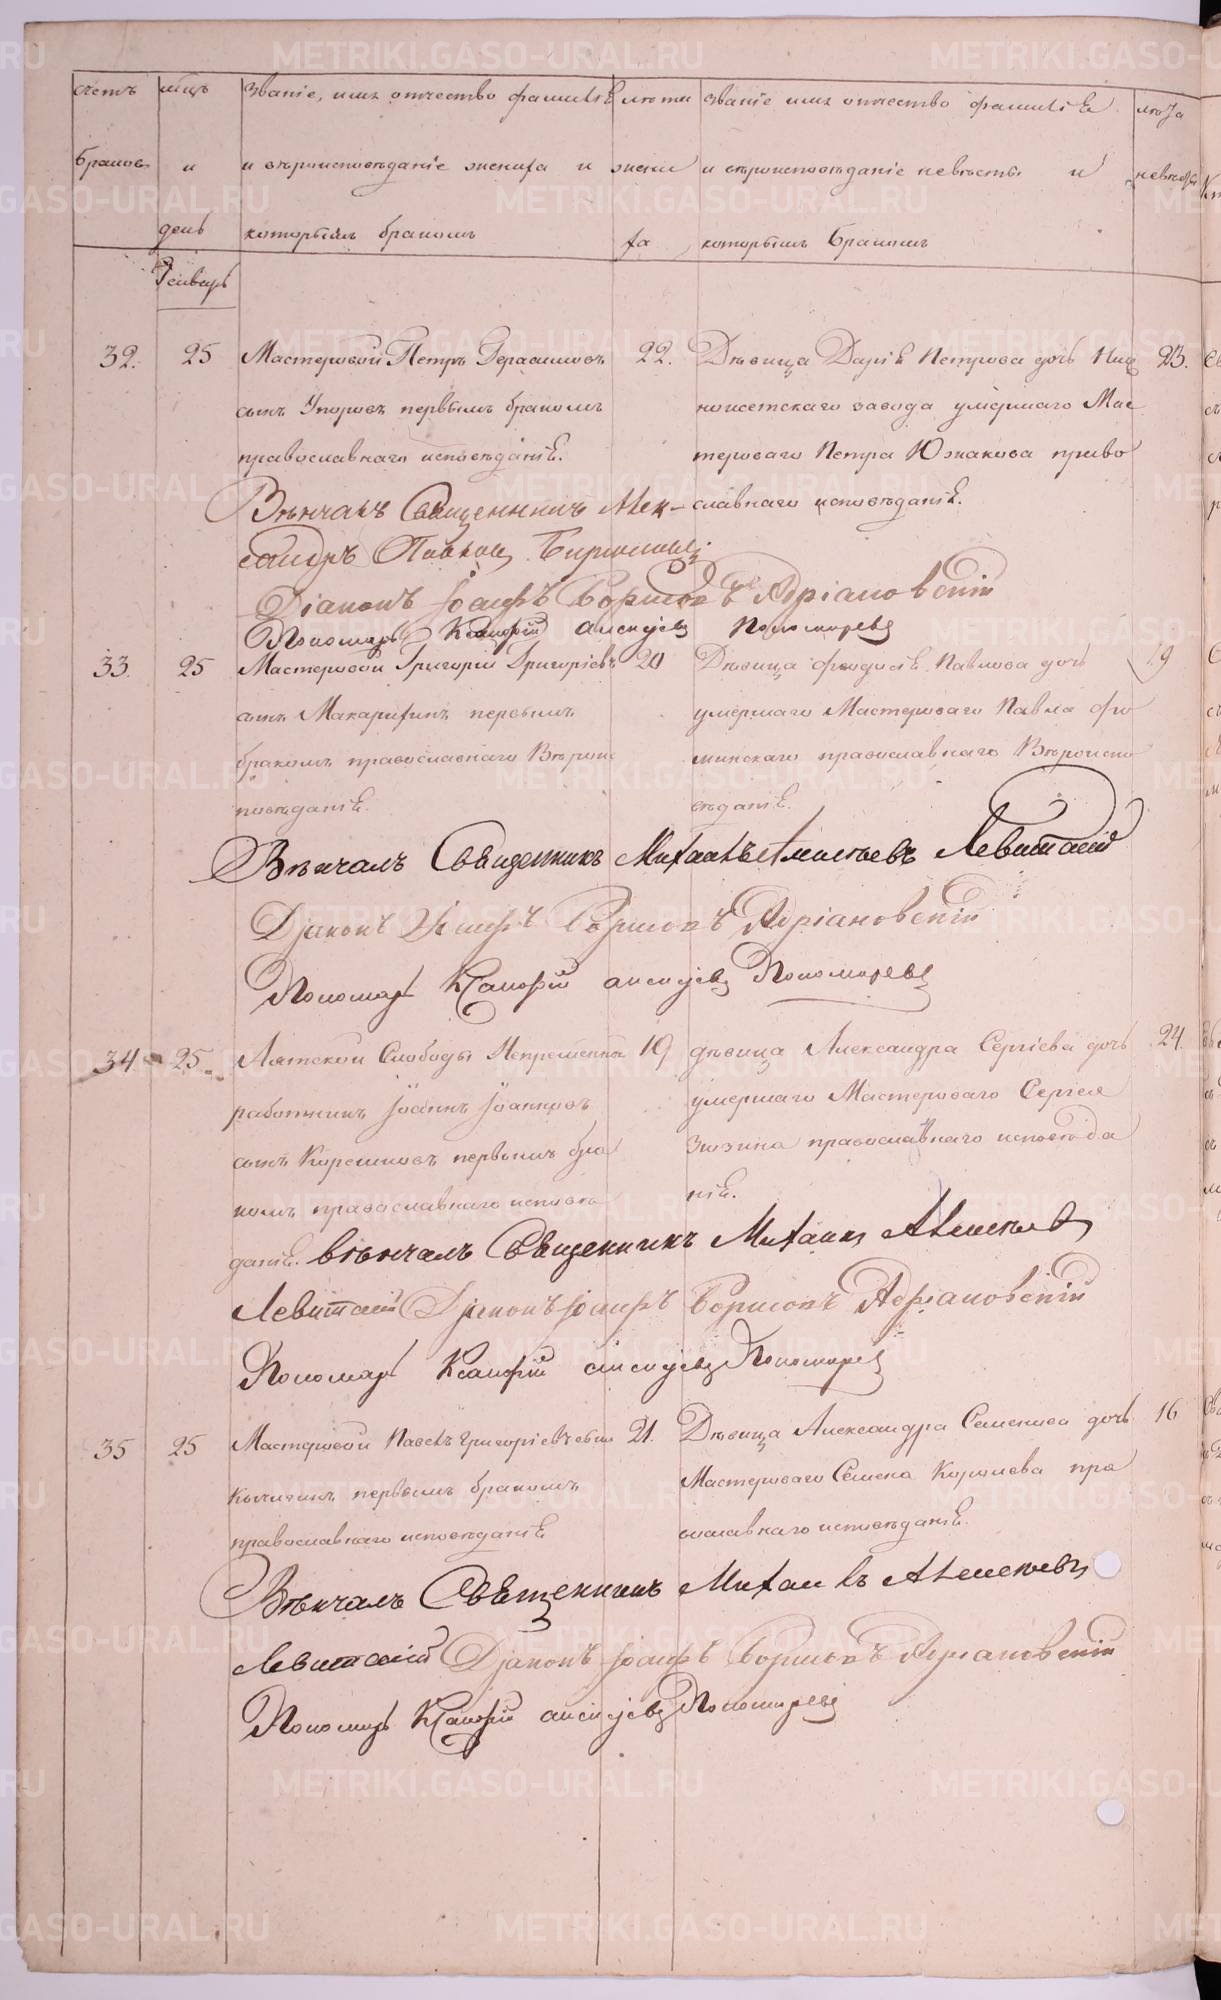 счетъ мѣцъ Званіе, имя отчество фамилія лѣта званіе имя отчество фамилія лѣта
браковъ и и вѣроисповѣданіе жениха и жени и вѣроисповѣданіе невѣсты и невѣсты
день которымъ бракомъ ха которымъ бракомъ
Генварь
32. 25 Мастеровой Петръ Герасимовъ 22. Дѣвица Дарія Петрова дочь Ниж 23.
сынъ Упоровъ первымъ бракомъ неисетскаго завода умершаго Мас
православнаго исповѣданія. тероваго Петра Южакова право
Вѣнчалъ Священникъ Алек- славнаго исповѣданія.
сандръ Павловъ
Діаконъ Іоаифъ Борисовъ Адріановскій
Пономарь алексѣевъ Пономаревъ
33. 25 Мастеровой Григорій Григорьевъ 20 Дѣвица Феодосія Павлова дочь 19
сынъ Макарихинъ первымъ умершаго Мастероваго Павла Фо
бракомъ православнаго Вѣроис минскаго православнаго Вѣроиспо
повѣданія. вѣданія.
Вѣнчалъ Священникъ Михаилъ Алексѣевъ Левитскій
Діаконъ Борисовъ Адріановскій
Пономарь алексѣевъ Пономаревъ
34 25 Лятской Слободы Непремѣнной 19 дѣвица Александра Сергіева дочь 24.
работникъ Іоаннъ Іоанновъ умершаго Мастероваго Сергея
сынъ Корешковъ первымъ бра Зюзина православнаго исповѣда
комъ православнаго исповѣ нія.
данія. вѣнчалъ Священникъ Михаилъ Алексѣевъ
Левитскій Діаконъ Борисовъ Адріановскій
Пономарь алексѣевъ Пономаревъ
35 25 Мастеровой Павелъ Григорьевъ сынъ 21. Дѣвица Александра Семенова дочь 16
Кычигинъ первымъ бракомъ Мастероваго Семена пра
православнаго исповѣданія вославнаго исповѣданія.
Вѣнчалъ Священникъ Михаилъ Алексѣевъ
Левитскій Діаконъ Борисовъ Адріановскій
Пономарь алексѣевъ Пономаревъ
METRIKI.GASO-URAL.RU